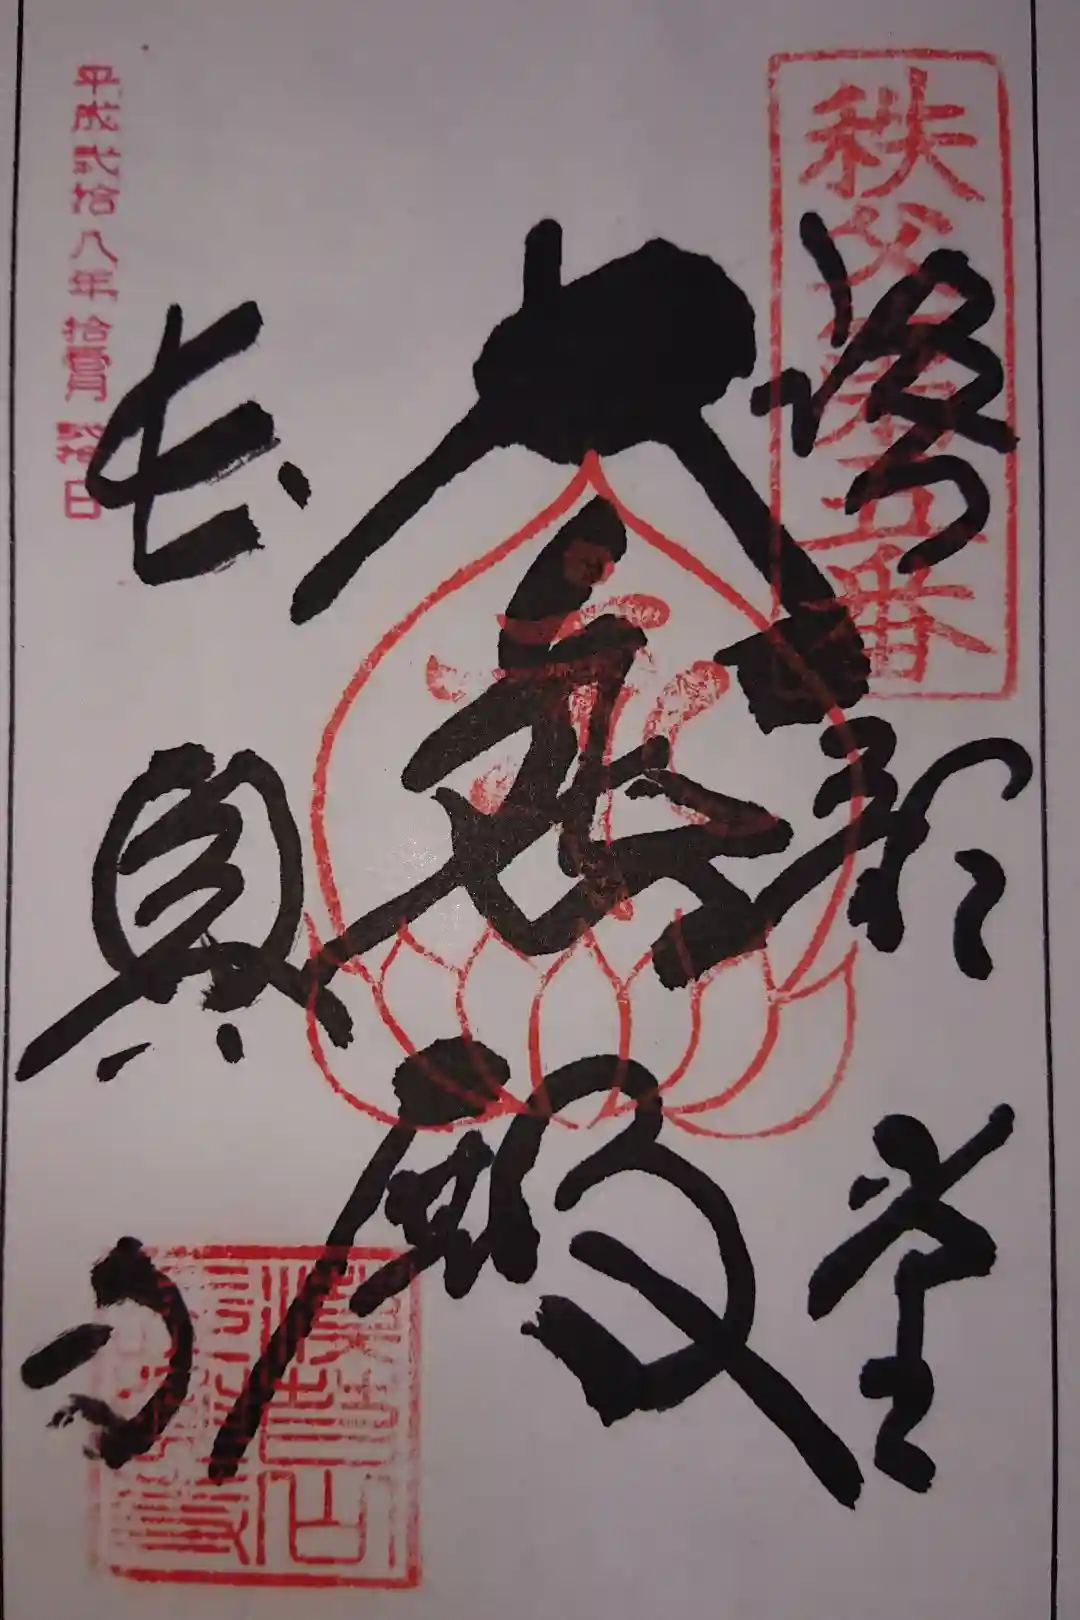 秩父第五番
語歌堂
大悲殿
長興寺
平成弐拾八年拾壹月拾日